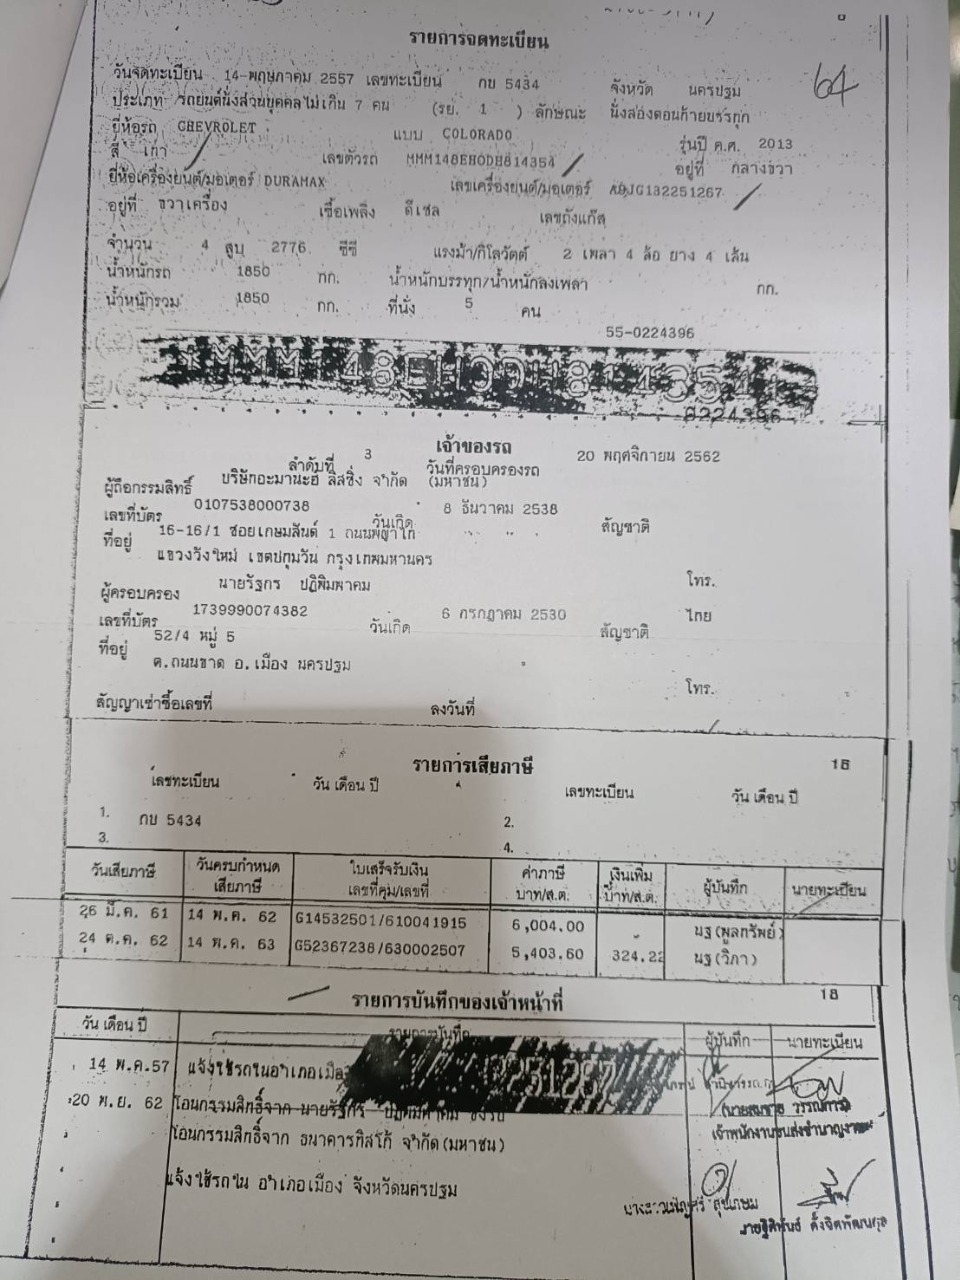 รายการจดทะเบียน
64
วันจดทะเบียน 14-พฤษภาคม 2557 เลขทะเบียน กบ 5434 จังหวัด นครปฐม
ประเภท รถยนต์นั่งส่วนบุคคลไม่เกิน 7 คน (รย. 1 ) ลักษณะ นั่งสองตอนท้ายบรรทุก
ยี่ห้อรถ CHEVROLET แบบ COLORADO รุ่นปี ค.ศ. 2013
สี เทา เลขตัวรถ MMM148EH0DH814354 อยู่ที่ กลางขวา
ยี่ห้อเครื่องยนต์/มอเตอร์ DURAMAX เลขเครื่องยนต์/มอเตอร์ A9JG132251267
อยู่ที่ ขวาเครื่อง เชื้อเพลิง ดีเซล เลขถังแก๊ส
จำนวน 4 สูบ 2776 ซีซี แรงม้า/กิโลวัตต์ 2 เพลา 4 ล้อ ยาง 4 เส้น
น้ำหนักรถ 1850 กก. น้ำหนักบรรทุก/น้ำหนักลงเพลา กก.
น้ำหนักรวม 1850 กก. ที่นั่ง 5 คน
55-0224396
MMM148EH0DH814354
0224396
เจ้าของรถ
ลำดับที่ 3 วันที่ครอบครองรถ 20 พฤศจิกายน 2562
ผู้ถือกรรมสิทธิ์ บริษัทอะมานะฮ์ ลิสซิ่ง จำกัด (มหาชน)
เลขที่บัตร 0107538000738 วันเกิด 8 ธันวาคม 2538 สัญชาติ
ที่อยู่ 16-16/1 ซอยเกษมสันต์ 1 ถนนพญาไท
แขวงวังใหม่ เขตปทุมวัน กรุงเทพมหานคร
โทร.
ผู้ครอบครอง นายรัฐกร ปฏิพิมพาคม
เลขที่บัตร 1739990074382 วันเกิด 6 กรกฎาคม 2530 สัญชาติ ไทย
ที่อยู่ 52/4 หมู่ 5
ต.ถนนขาด อ.เมือง นครปฐม
โทร.
สัญญาเช่าซื้อเลขที่ ลงวันที่
รายการเสียภาษี 16
เลขทะเบียน วัน เดือน ปี เลขทะเบียน วัน เดือน ปี
1. กบ 5434 2.
3. 4.
วันเสียภาษี วันครบกำหนดเสียภาษี ใบเสร็จรับเงิน เลขที่คุม/เลขที่ ค่าภาษี บาท/ส.ต. เงินเพิ่ม บาท/ส.ต. ผู้บันทึก นายทะเบียน
26 มี.ค. 61 14 พ.ค. 62 G14532501/610041915 6,004.00 นฐ(พูลทรัพย์)
24 ต.ค. 62 14 พ.ค. 63 G52367238/630002507 5,403.60 324.22 นฐ(วิภา)
รายการบันทึกของเจ้าหน้าที่ 18
วัน เดือน ปี รายการบันทึก ผู้บันทึก นายทะเบียน
14 พ.ค.57 แจ้งใช้รถในอำเภอเมือง
20 พ.ย. 62 โอนกรรมสิทธิ์จาก นายรัฐกร
เจ้าพนักงานขนส่งชำนาญงาน
โอนกรรมสิทธิ์จาก ธนาคารทิสโก้ จำกัด(มหาชน)
แจ้งใช้รถใน อำเภอเมือง จังหวัดนครปฐม